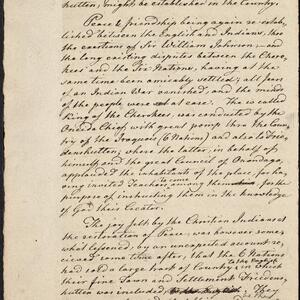 hutten, might be established in the Country.
Peace & friendship being again re-estab-
lished between the English and Indians, thro
the exertions of Sir William Johnson, and
the long existing disputes between the Chero-
kees and the Six Nations, having at the
same time been amicably settled; all fears
of an Indian War vanished, and the minds
of the people were at ease. The so called
King of the Cherokees, was conducted by the
Oneida Chief, with great pomp thro the Coun-
try of the Iroquois (6 Nations) and also to Frie-
denshutten; where the latter, in behalf of
himself and the great Council of Onondago,
applauded the inhabitants of the place, for ha-
ving invited Teachers to come among them for the
purpose of instructing them in the knowledge
of God their Creator.
The joy felt by the Christian Indians at
the restoration of Peace, was however some
what lessened, by an unexpected account re-
ceived some time after, that the 6 Nations
had sold a large track of Country, to the English in which
their fine Town and Settlement Frieden-
hutten was included, They